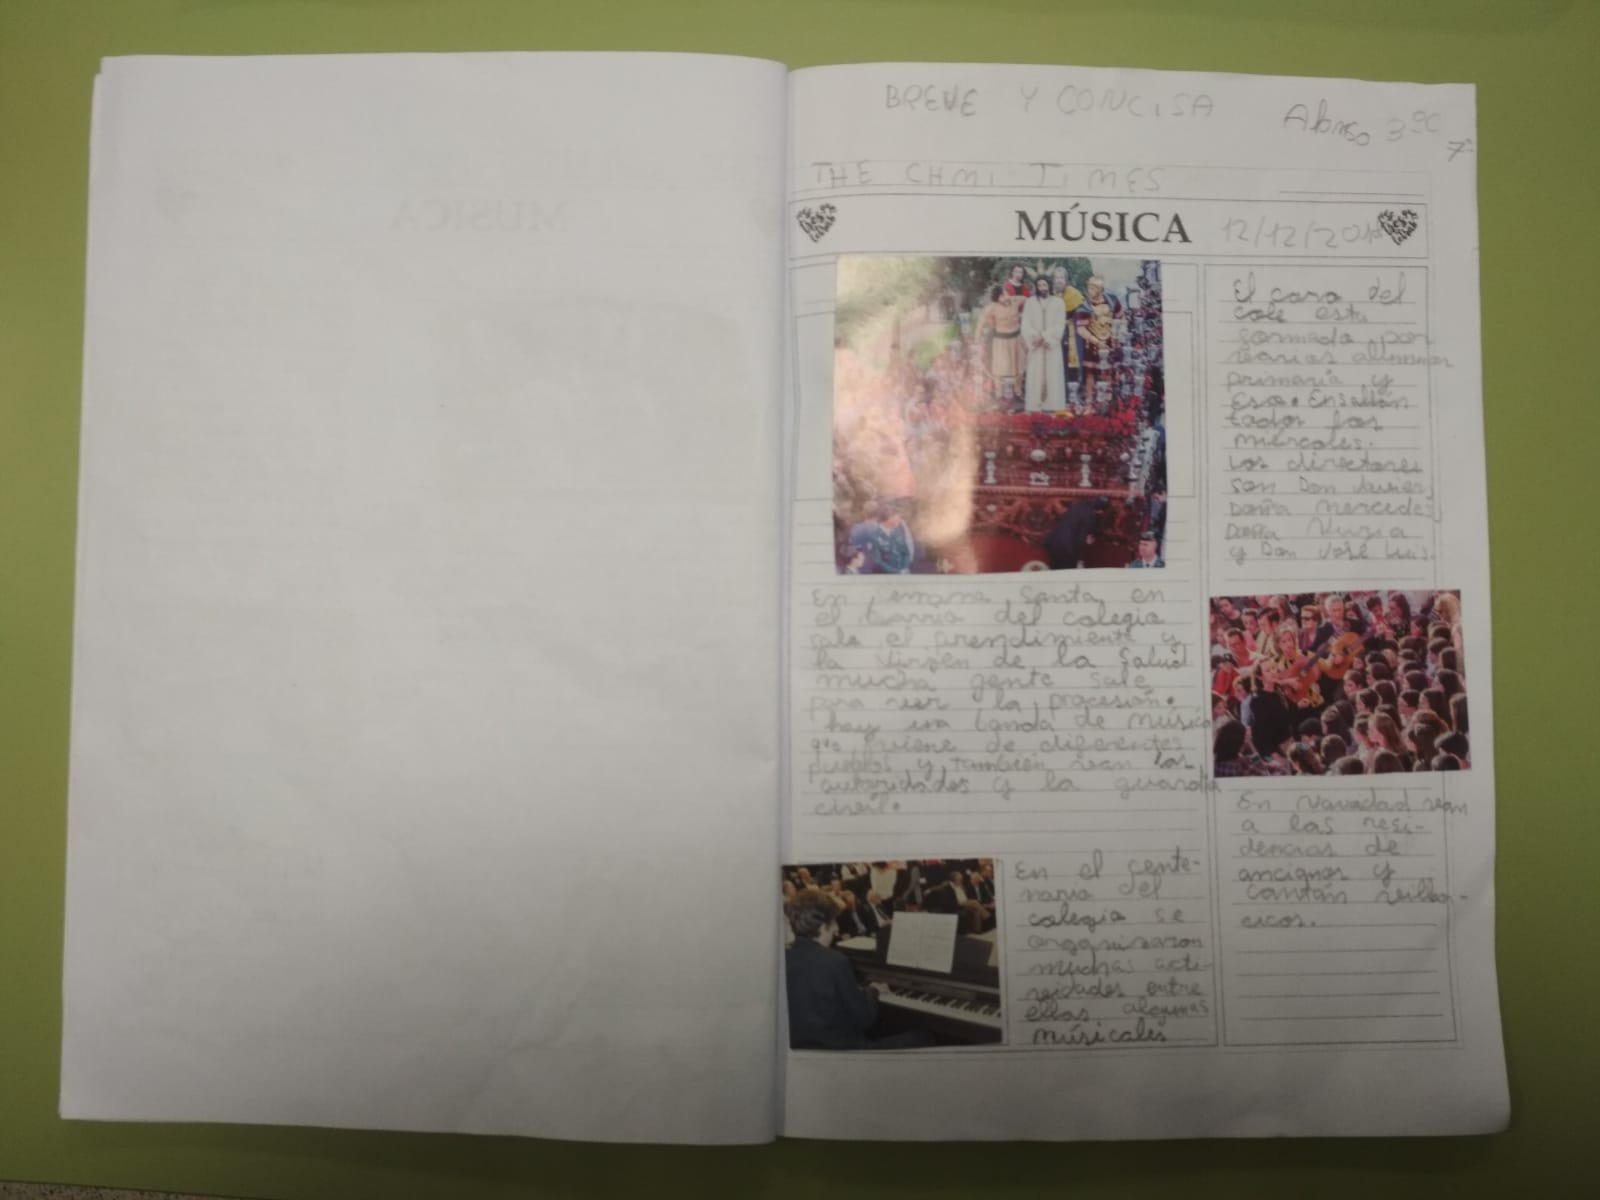 BREVE Y CONCISA
Alonso 3ºC
7º
THE CHMI TIMES
MÚSICA
12/12/2018
En semana Santa en
el barrio del colegio
sale el prendimiento y
la Virgen de la Salud
mucha gente sale
para ver la procesión.
hay una banda de música
que viene de diferentes
pueblos y también van las
autoridades y la guardia
civil.
En el cente-
nario del
colegio se
organizaron
muchas acti-
vidades entre
ellas algunas
músicales
El coro del
cole esta
formado por
varios alumnos
primaria y
Eso. Ensallan
todos los
miércoles.
Los directores
son Don Javier,
Doña Mercedes,
Doña
y Don José Luis.
En Navidad van
a las resi-
dencias de
ancianos y
cantán villan-
cicos.